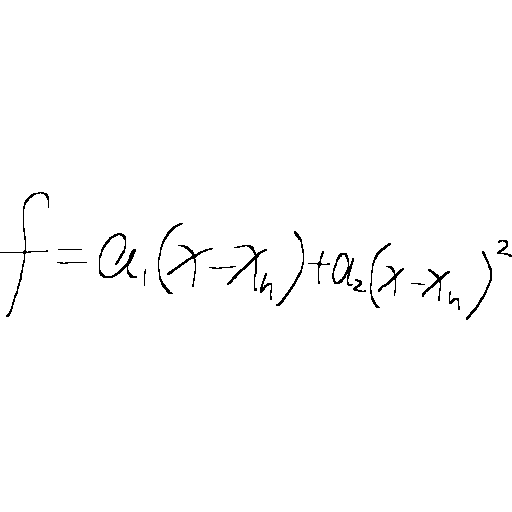 f = a₁(x - xₙ) + a₂(x - xₙ)²